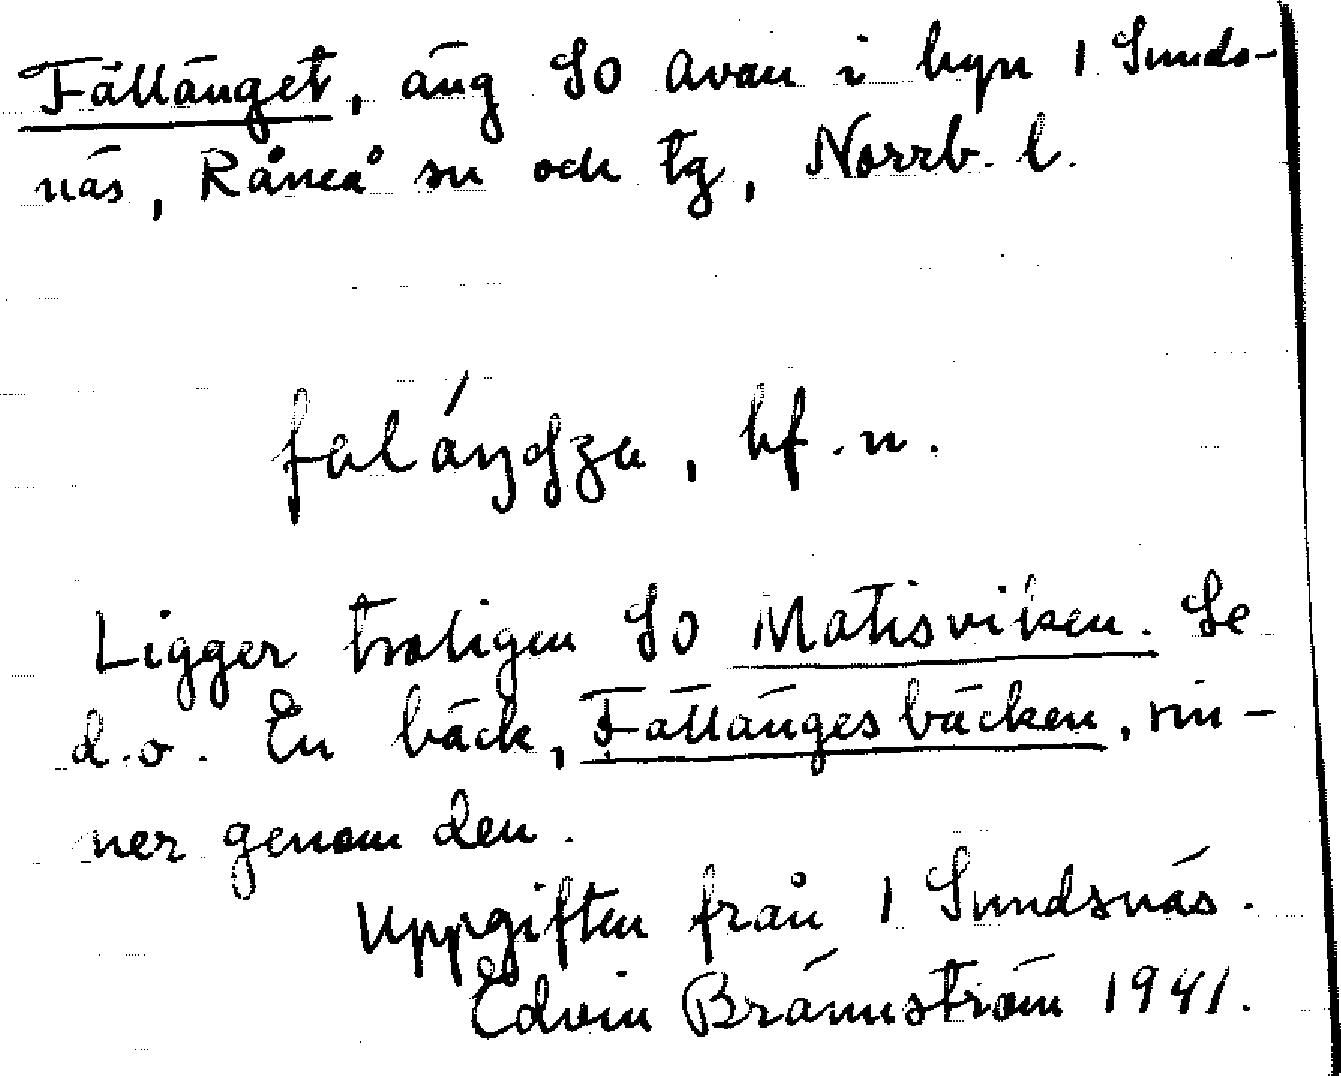 Fällänget, äng SO Avan i byn 1 Sunds-
näs, Råneå sn och tg, Norrb. l.
falä́ŋʤa, bf. n.
Ligger troligen SO Matisviken. Se
d.o. En bäck, Fällängesbäcken, rin-
ner genom den.
Uppgiften från 1 Sundsnäs.
Edvin Brännström 1941.